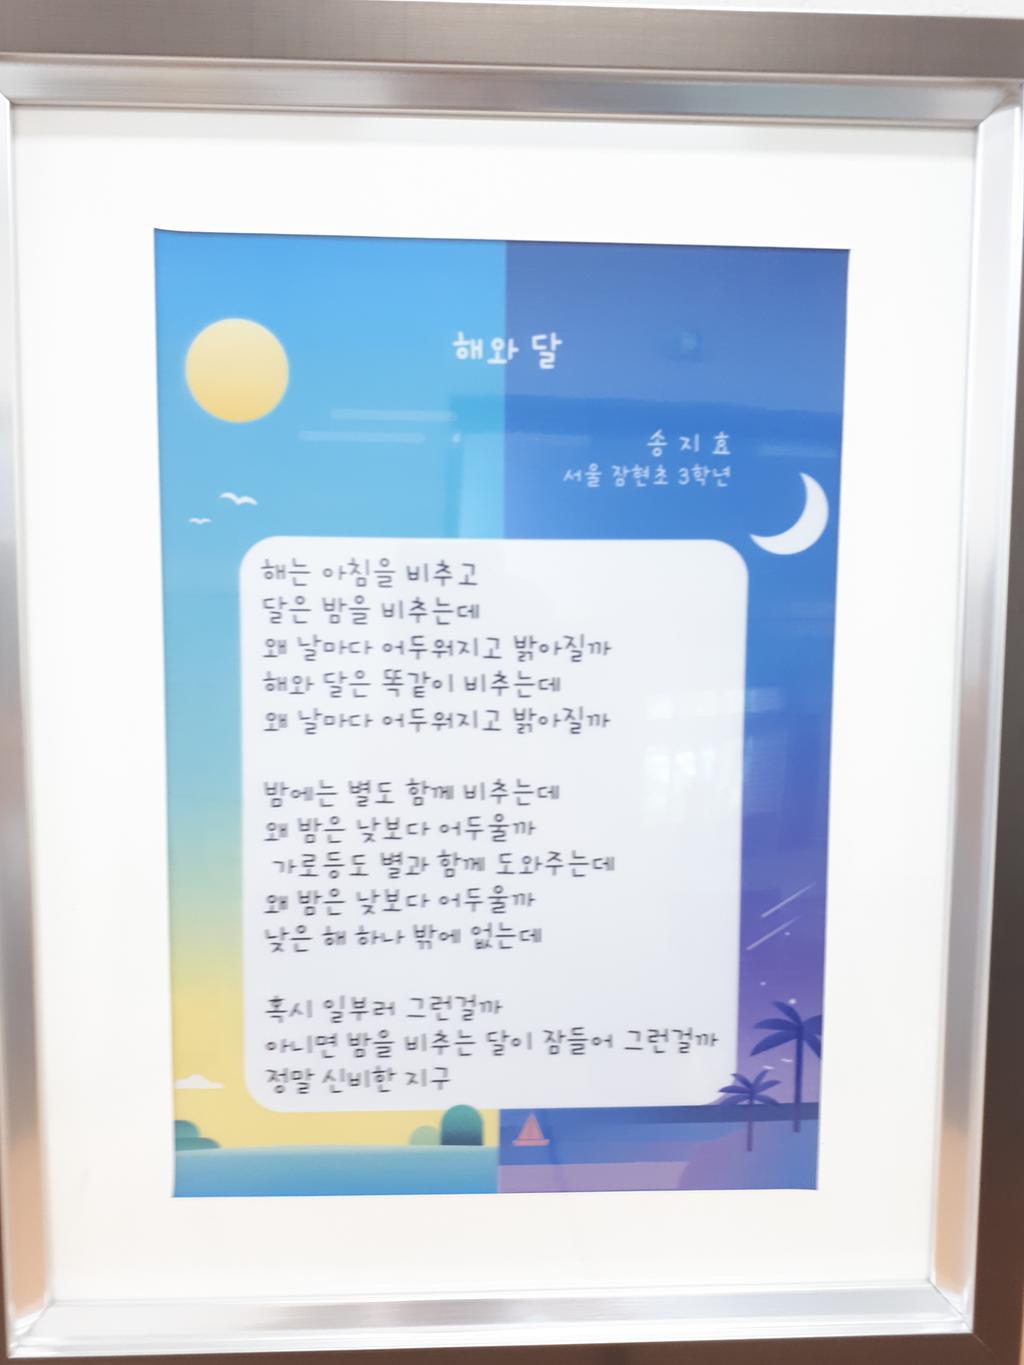 해와 달
송 지 효
서울 잠현초 3학년
해는 아침을 비추고
달은 밤을 비추는데
왜 날마다 어두워지고 밝아질까
해와 달은 똑같이 비추는데
왜 날마다 어두워지고 밝아질까
밤에는 별도 함께 비추는데
왜 밤은 낮보다 어두울까
가로등도 별과 함께 도와주는데
왜 밤은 낮보다 어두울까
낮은 해 하나 밖에 없는데
혹시 일부러 그런걸까
아니면 밤을 비추는 달이 잠들어 그런걸까
정말 신비한 지구